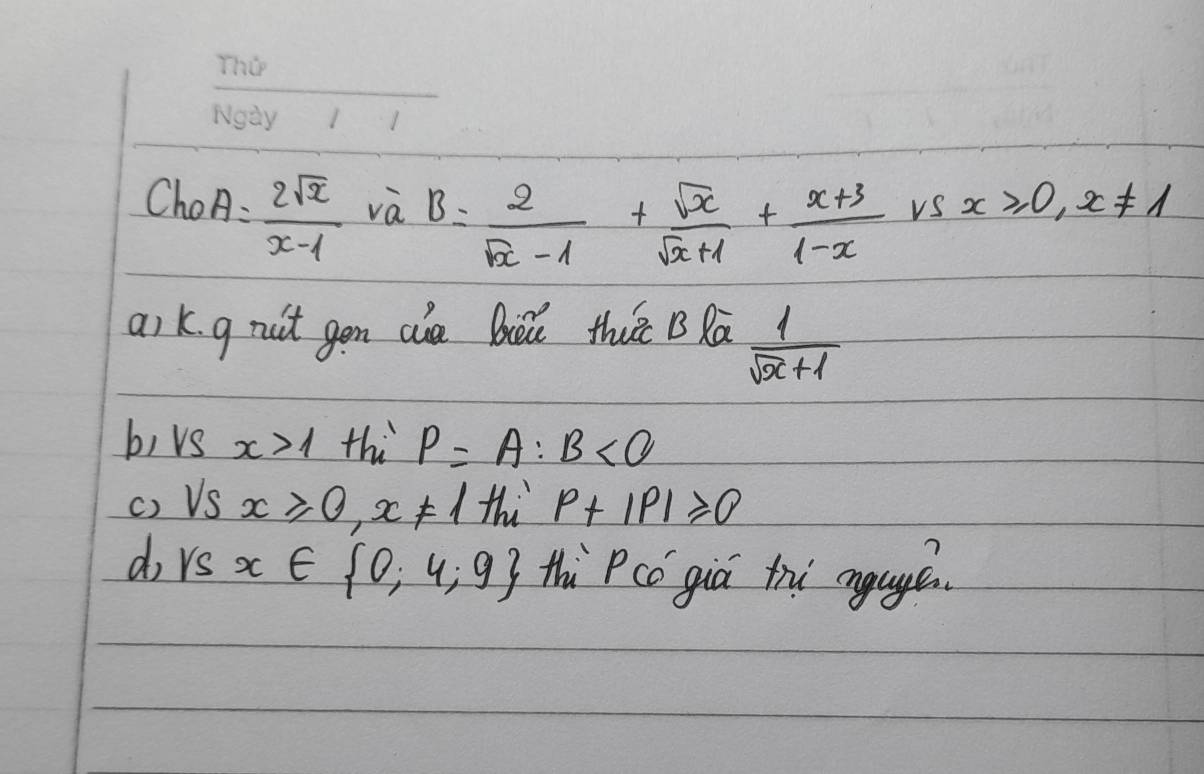 Thứ
Ngày / /
Cho A = \frac{2\sqrt{x}}{x-1} và B = \frac{2}{\sqrt{x}-1} + \frac{\sqrt{x}}{\sqrt{x}+1} + \frac{x+3}{1-x} vs x ≥ 0, x ≠ 1
a) K.q rút gọn của biểu thức B là \frac{1}{\sqrt{x}+1}
b) Vs x > 1 thì P = A : B < 0
c) Vs x ≥ 0, x ≠ 1 thì P + |P| ≥ 0
d) Vs x ∈ {0; 4; 9} thì P có giá trị nguyên.